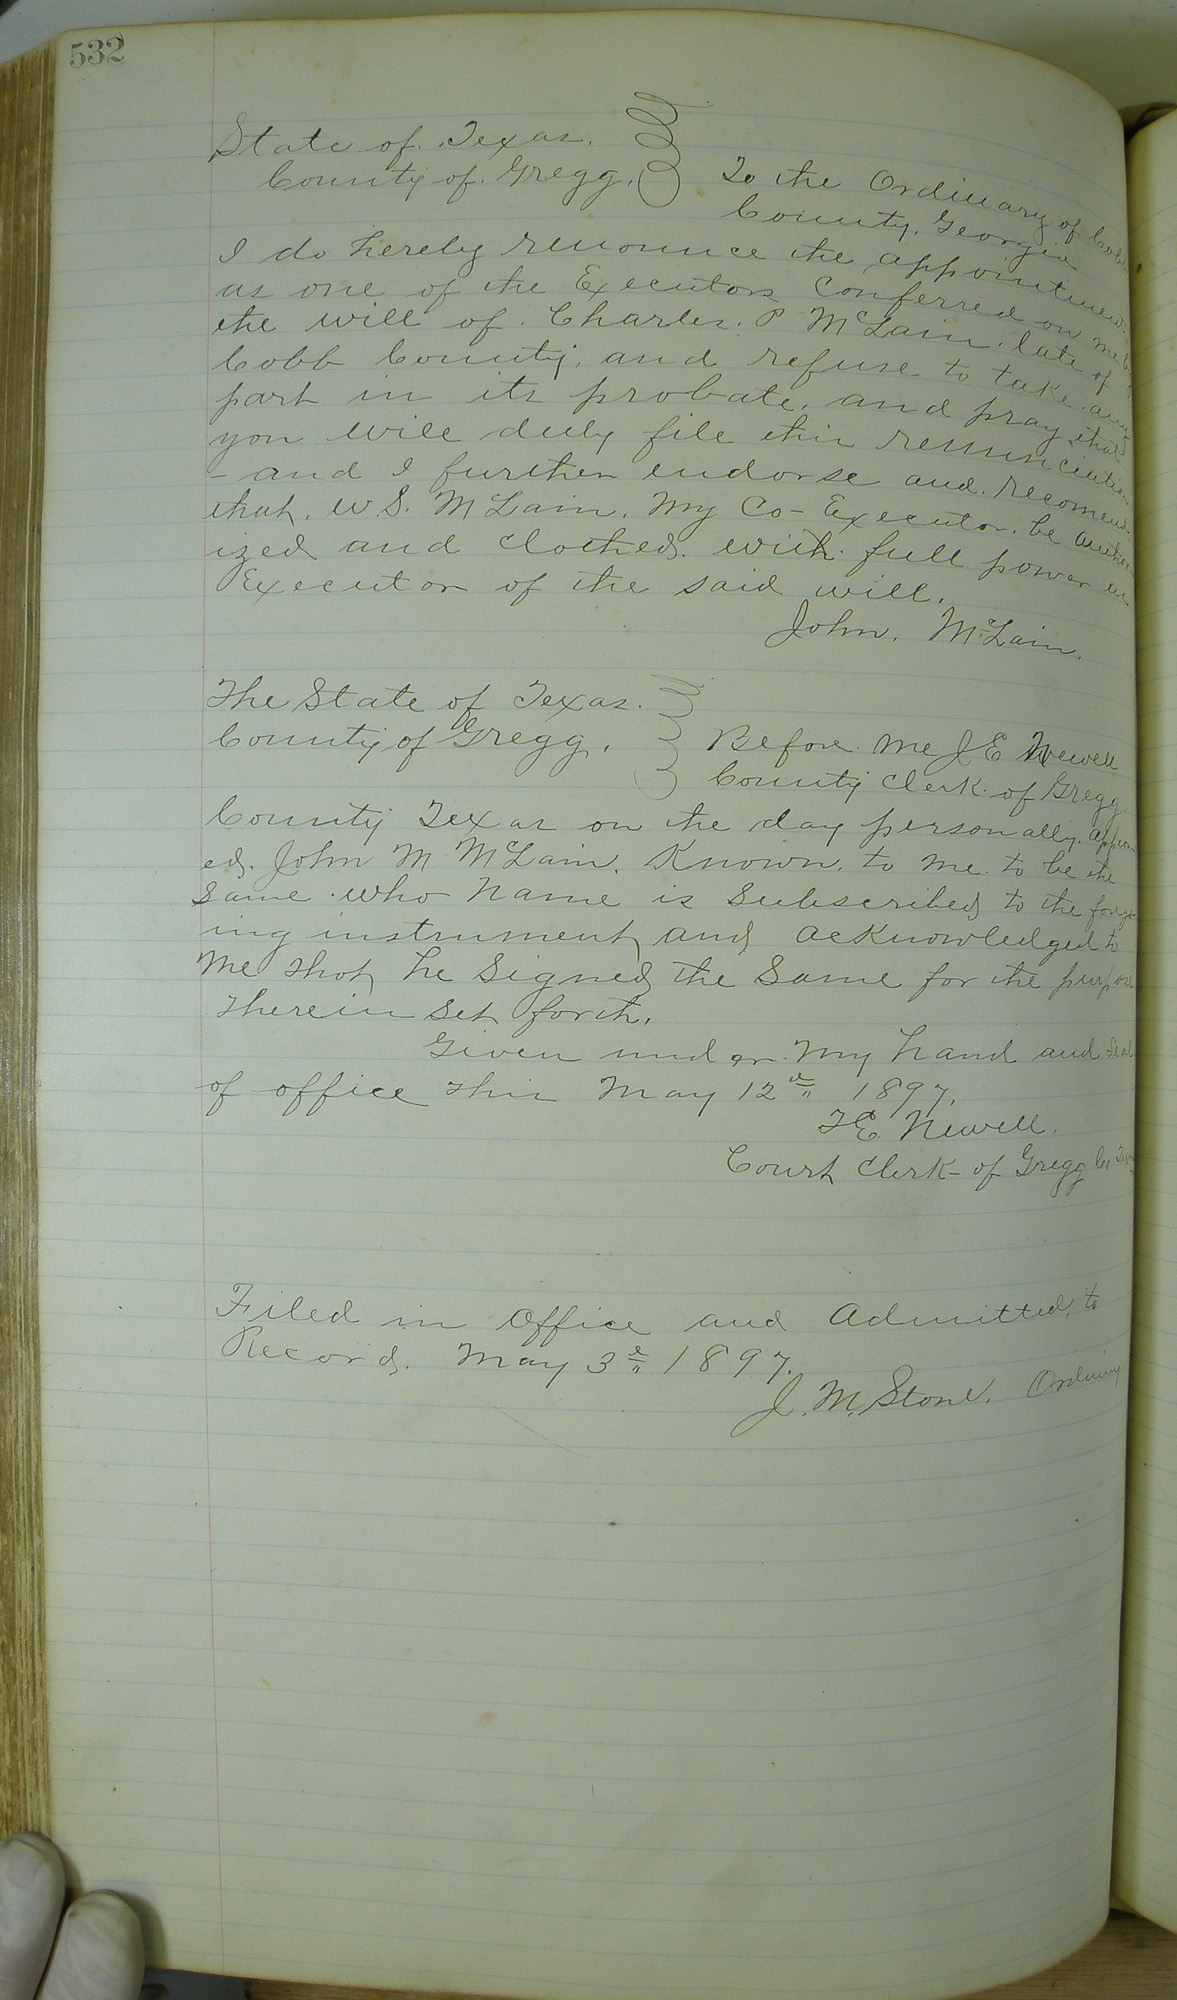 532
State of Texas.
County of Gregg.
To the Ordinary of Cobb
County, Georgia
I do hereby renounce the appointment
as one of the Executors conferred on me by
the will of Charles. P McLain. late of
Cobb County, and refuse to take any
part in its probate. and pray that
you will duly file this renunciation
- and I further endorse and. recomend
that. W S. McLain. My Co-Executor. be author
ized and clothed. with. full power as
Executor of the said will.
John. McLain.
The State of Texas.
County of Gregg,
Before me J E Newell
County Clerk. of Gregg
County Texas on the day personally. appear
ed. John M McLain. Known. to me to be the
same who name is subscribed to the forego-
ing instrument, and acknowledged to
me that he signed the same for the purpose
therein set forth.
Given under my hand and seal
of office this May 12th 1897.
J E. Newell.
Court Clerk - of Gregg Co Tex
Filed in Office and Admitted. to
Record. May 3d 1897.
J. M. Stone. Ordinary